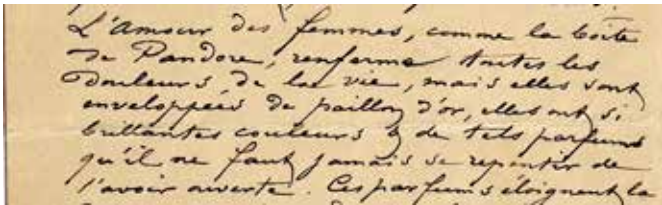 L'amour des femmes, comme la boîte
de Pandore, renferme toutes les
douleurs de la vie, mais elles sont
enveloppées de paillons d'or, elles ont si
brillantes couleurs & de tels parfums
qu'il ne faut jamais se repentir de
l'avoir ouverte. Ces parfums éloignent la